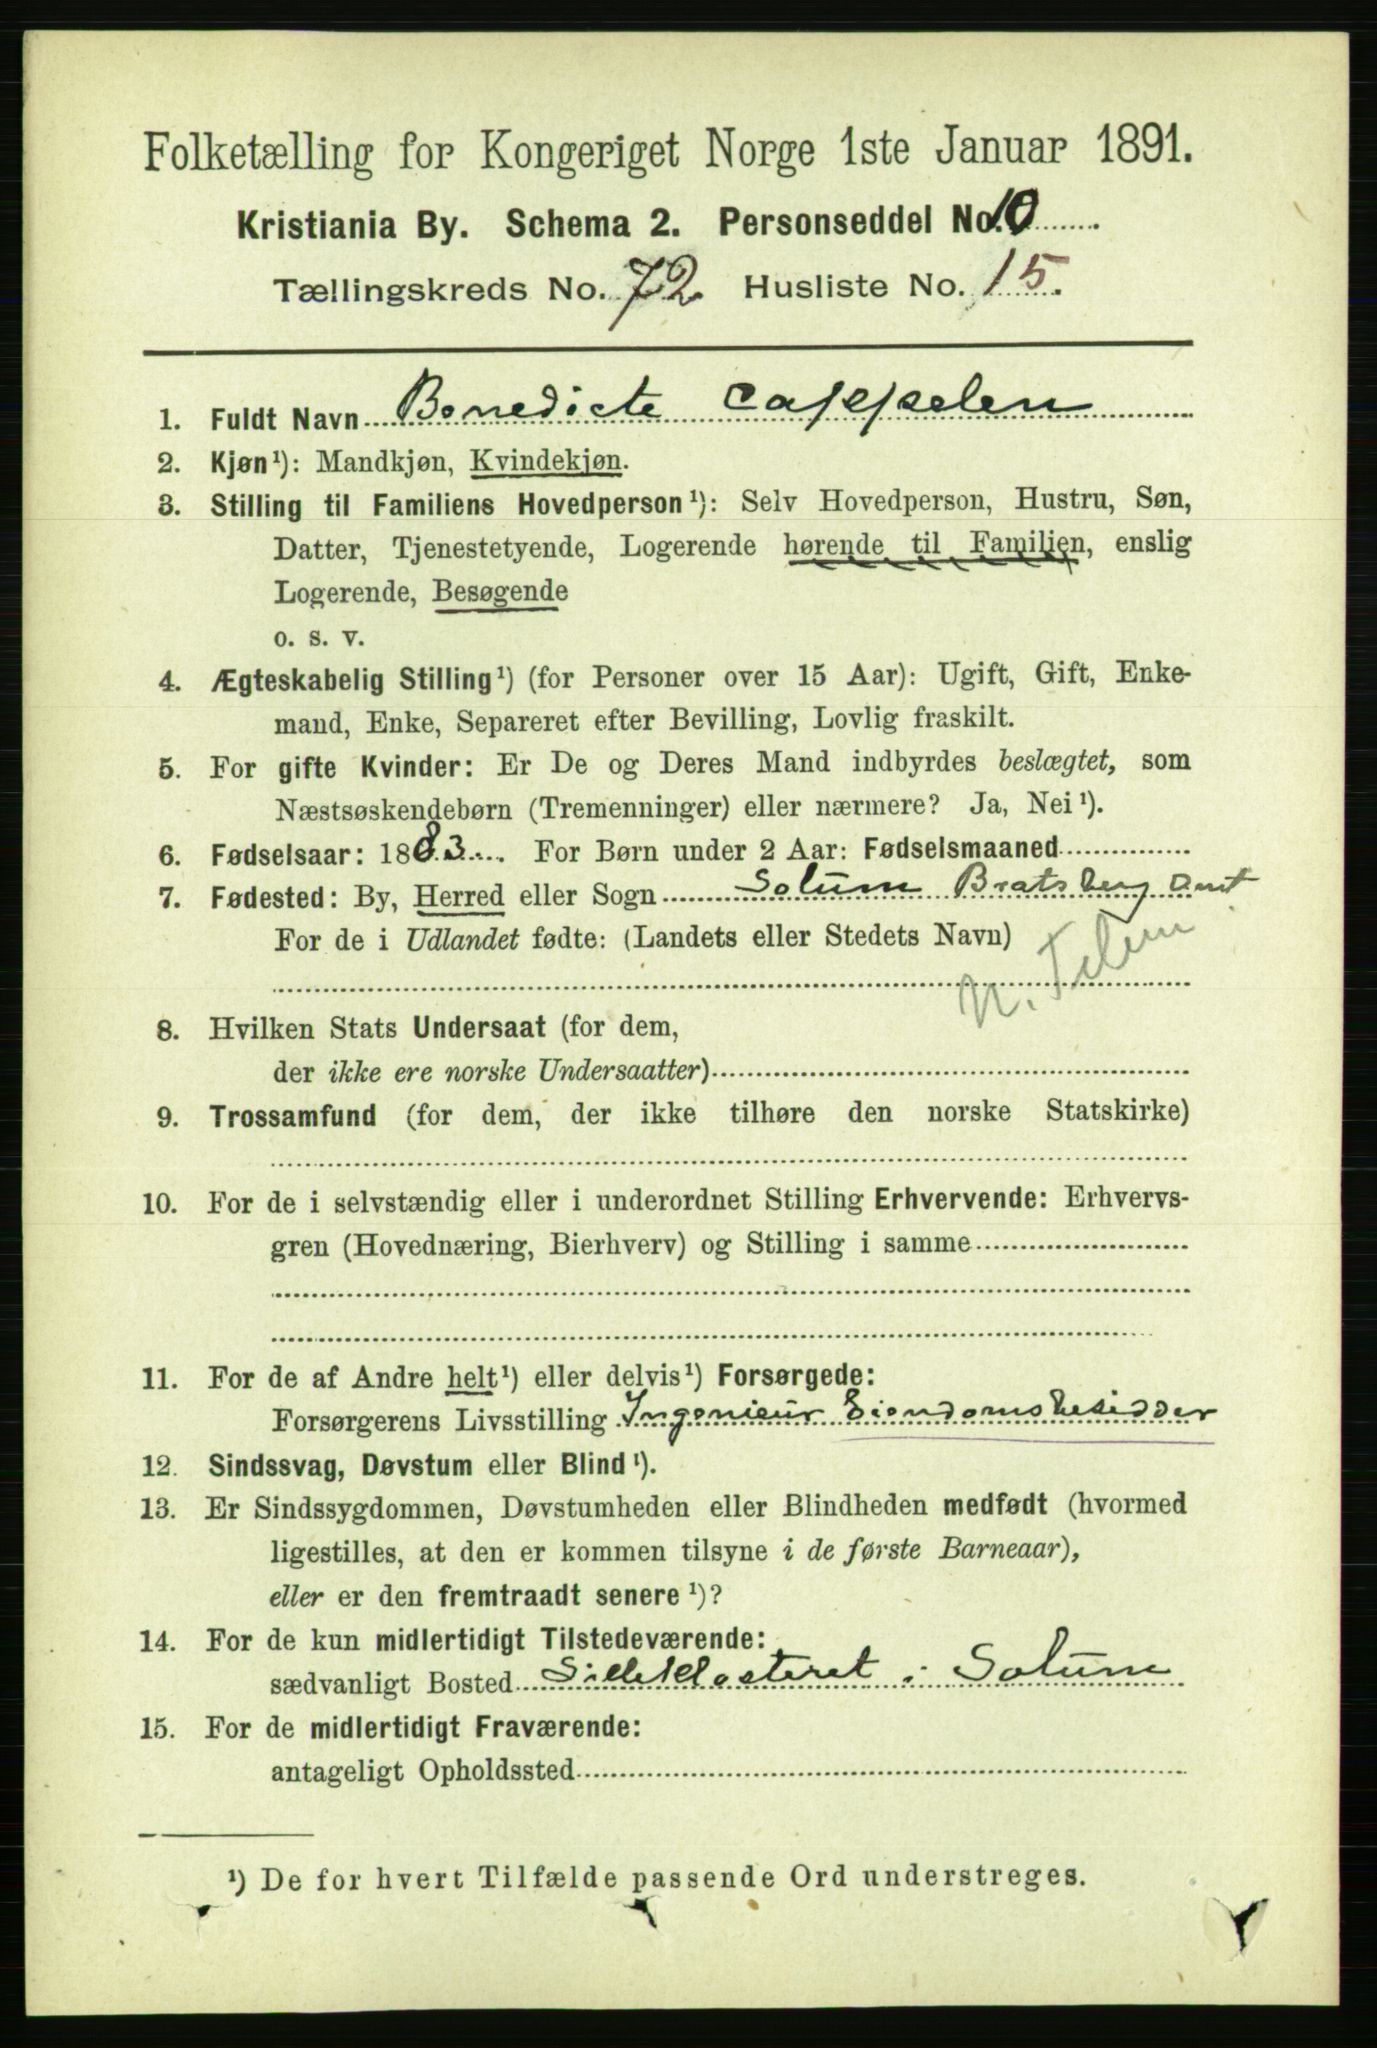 Folketælling for Kongeriget Norge 1ste Januar 1891.
Kristiania By. Schema 2. Personseddel No. 10
Tællingskreds No. 72 Husliste No. 15.
1. Fuldt Navn Benedicte Cappelen
2. Kjøn¹): Mandkjøn, Kvindekjøn.
3. Stilling til Familiens Hovedperson¹): Selv Hovedperson, Hustru, Søn,
Datter, Tjenestetyende, Logerende hørende til Familien, enslig
Logerende, Besøgende
o. s. v.
4. Ægteskabelig Stilling¹) (for Personer over 15 Aar): Ugift, Gift, Enke-
mand, Enke, Separeret efter Bevilling, Lovlig fraskilt.
5. For gifte Kvinder: Er De og Deres Mand indbyrdes beslægtet, som
Næstsøskendebørn (Tremenninger) eller nærmere? Ja, Nei¹).
6. Fødselsaar: 1883. For Børn under 2 Aar: Fødselsmaaned
7. Fødested: By, Herred eller Sogn Solum Bratsberg Amt
For de i Udlandet fødte: (Landets eller Stedets Navn)
n. Telem
8. Hvilken Stats Undersaat (for dem,
der ikke ere norske Undersaatter)
9. Trossamfund (for dem, der ikke tilhøre den norske Statskirke)
10. For de i selvstændig eller i underordnet Stilling Erhvervende: Erhvervs-
gren (Hovednæring, Bierhverv) og Stilling i samme
11. For de af Andre helt¹) eller delvis¹) Forsørgede:
Forsørgerens Livsstilling Ingenieur Eiendomsbesidder
12. Sindssvag, Døvstum eller Blind¹).
13. Er Sindssygdommen, Døvstumheden eller Blindheden medfødt (hvormed
ligestilles, at den er kommen tilsyne i de første Barneaar),
eller er den fremtraadt senere¹)?
14. For de kun midlertidigt Tilstedeværende:
sædvanligt Bosted i Solum
15. For de midlertidigt Fraværende:
antageligt Opholdssted
¹) De for hvert Tilfælde passende Ord understreges.